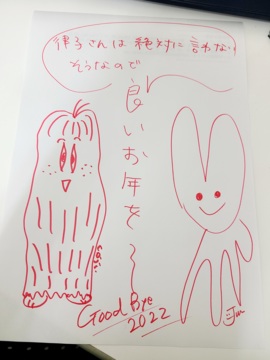 律子さんは 絶対に 言わない
そうなので
良いお年を〜
Good Bye
2022